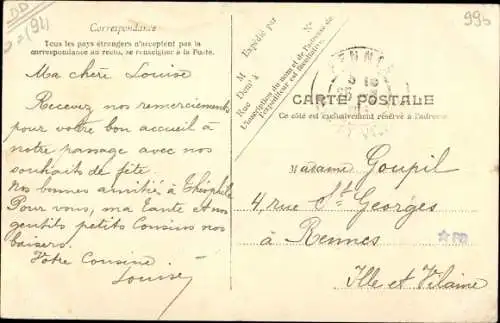 Correspondance
Tous les pays étrangers n'acceptent pas la
correspondance au recto, se renseigner à la Poste.
Ma chère Louise
Recevez nos remerciements
pour votre bon accueil à
notre passage avec nos
souhaits de fête.
Nos bonnes amitiés à Théophile
Pour vous, ma tante et nos
gentils petits Cousins nos
baisers.
Votre Cousine
Louise
Expédié par
M
Demt à
Rue
N°
L'inscription du nom et de l'adresse de
l'expéditeur est facultative.
CARTE POSTALE
Ce côté est exclusivement réservé à l'adresse
Madame Goupil
4, rue St Georges
à Rennes
Ille et Vilaine
99b